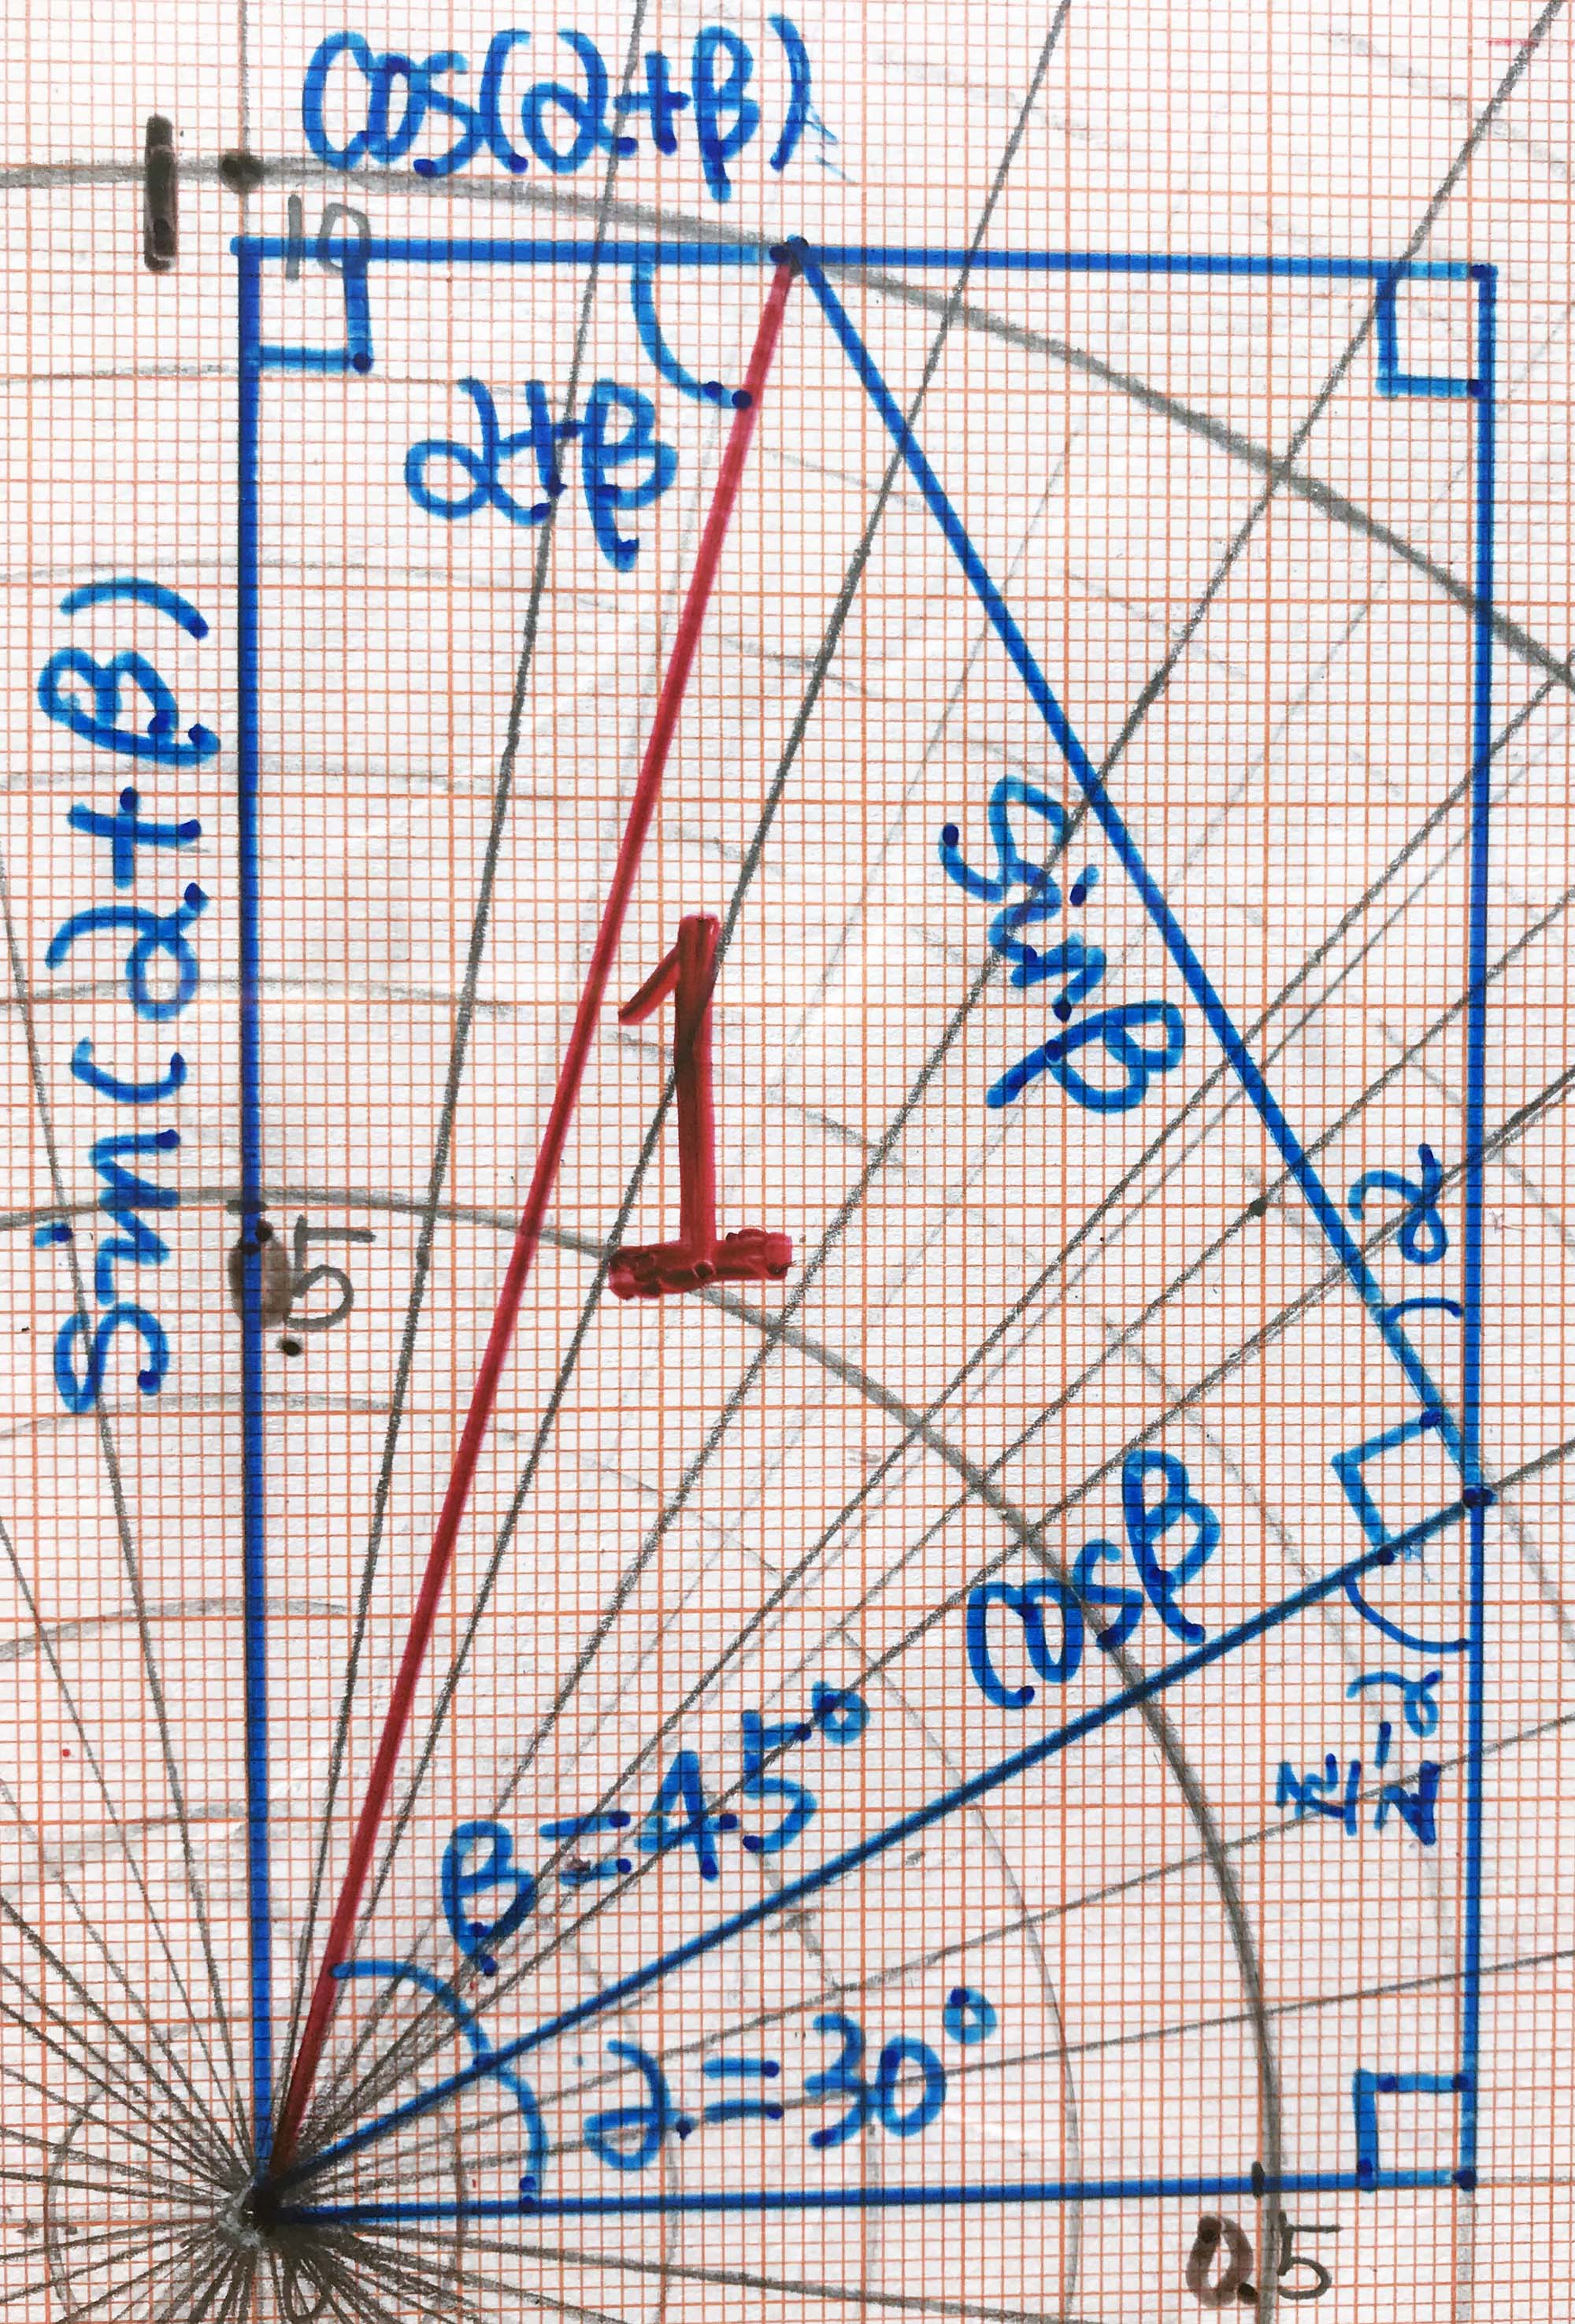 cos(α+β)
1
10
α+β
sin(α+β)
1
sinβ
α
0.5
cosβ
π/2-α
β=45°
α=30°
0.5